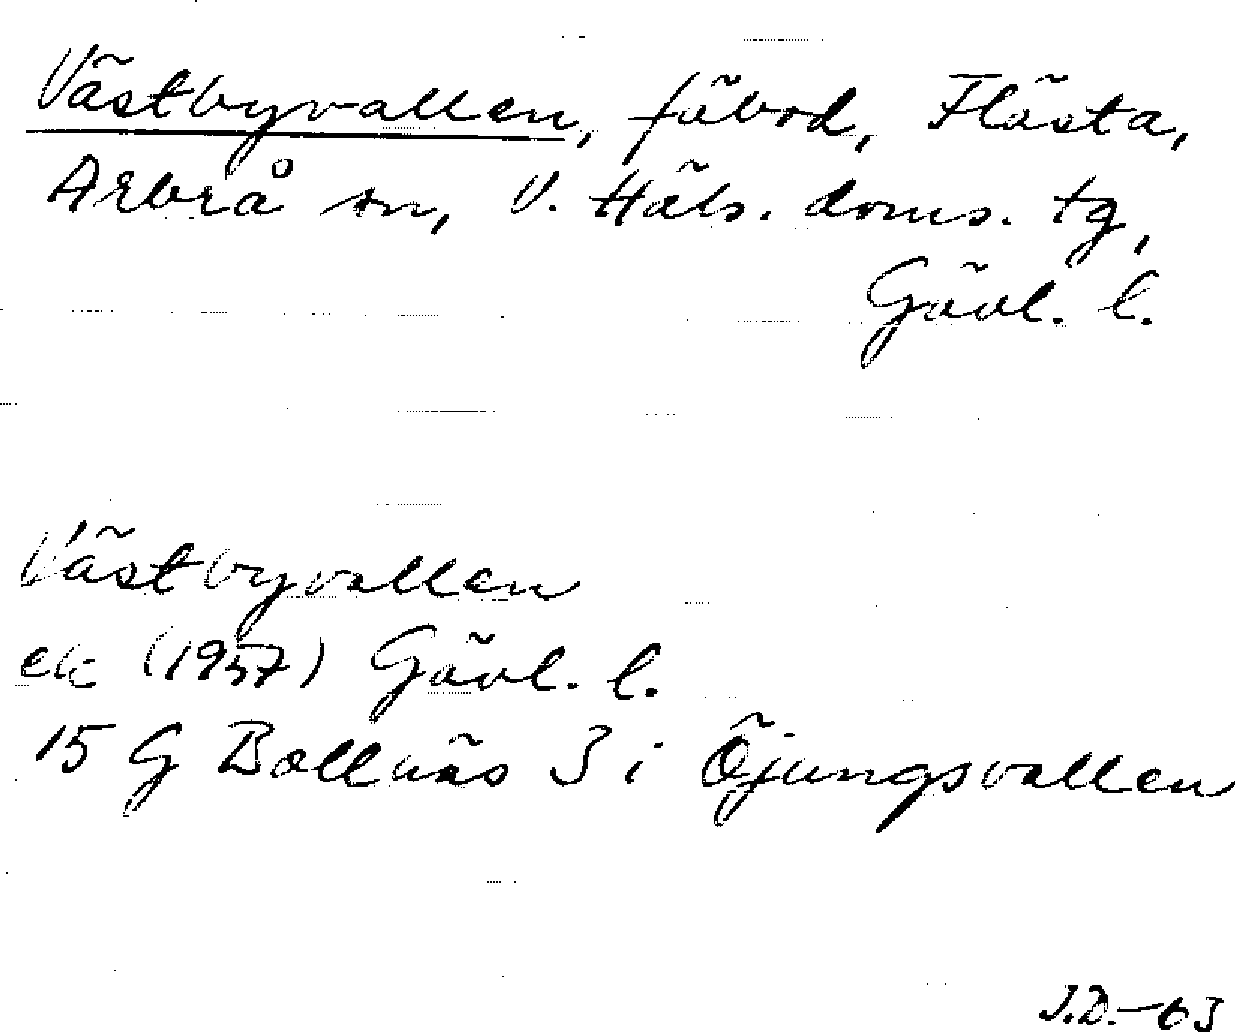 Västbyvallen, fäbod, Flästa,
Arbrå sn, V. Häls. doms. tg,
Gävl. l.
Västbyvallen
ek (1957) Gävl. l.
15 G Bollnäs 3 i Öjungsvallen
J.D.-63